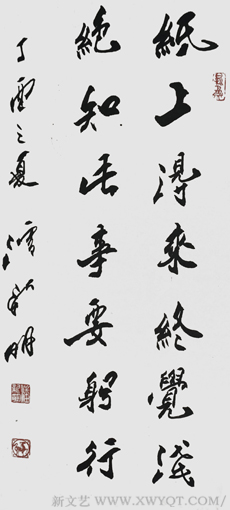 紙上得來終覺淺
絕知此事要躬行
丁酉之夏
明
新文艺 WWW.XWYQT.COM/